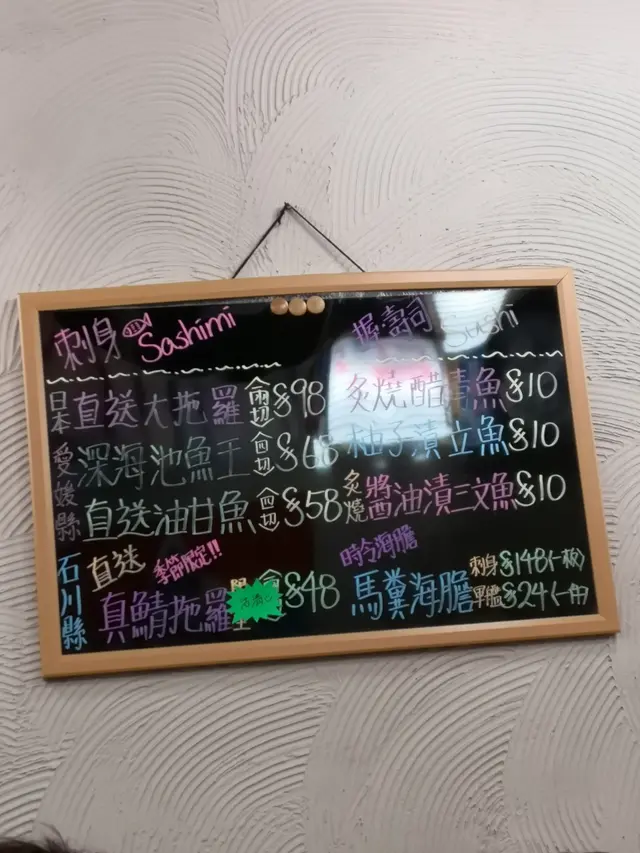 刺身 Sashimi
日本 直送大拖羅 (兩切) $98
愛媛縣 深海池魚王 (四切) $68
直送油甘魚 (四切) $58
石川縣 直送 季節限定!!
真鯖拖羅 $48
握壽司 Sushi
炙燒醋青魚 $10
柚子漬立魚 $10
炙燒 將酉油漬三文魚 $10
時令海膽
馬糞海膽 刺身 $148(一板)
軍艦 $24(一件)